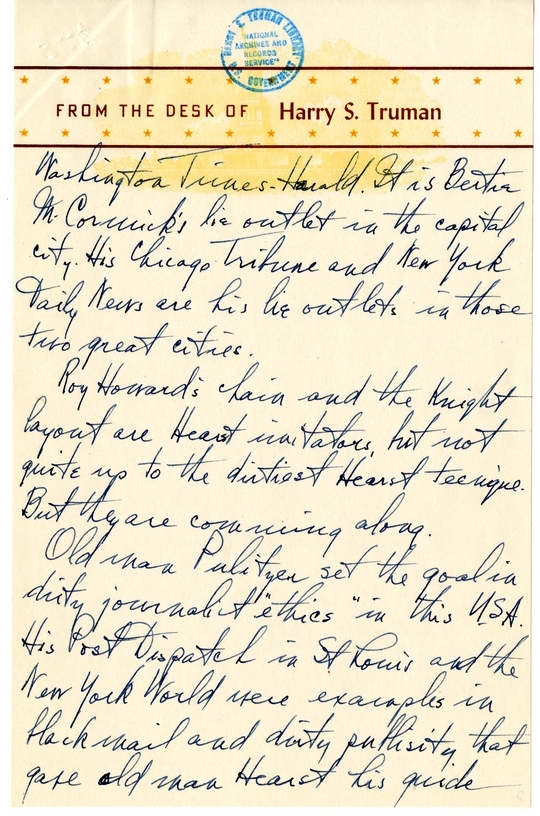 HARRY S. TRUMAN LIBRARY
NATIONAL
ARCHIVES AND
RECORDS
SERVICE
U.S. GOVERNMENT
FROM THE DESK OF Harry S. Truman
Washington Times-Harald. It is Bertie
McCormick's lie outlet in the capital
city. His Chicago Tribune and New York
Daily News are his lie outlets in those
two great cities.
Roy Howard's chain and the Knight
layout are Hearst imitators, but not
quite up to the dirtiest Hearst teenique.
But they are comming along.
Old man Pulitzer set the goal in
dirty journalist "ethics" in this USA.
His Post Dispatch in St. Louis and the
New York World were examples in
black mail and dirty publisity that
gave old man Hearst his guide